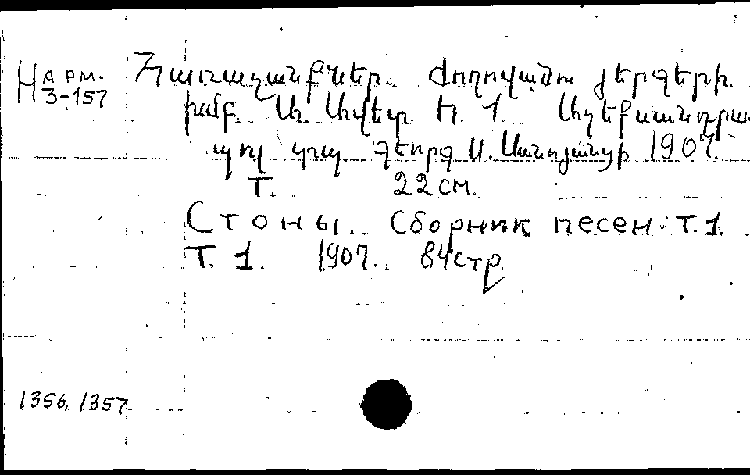 Нарм. Հառաչանքներ. Ժողովածու երգերի
3-157 խմբ. Առ. Ալվեր հ. 1. Աղեքսանդրա
պոլ տպ. Գևորգ Ս. Սանոյանցի 1907.
Т. 22 см.
Стоны. Сборник песен. Т. 1.
Т. 1. 1907. 84 стр
1356, 1357